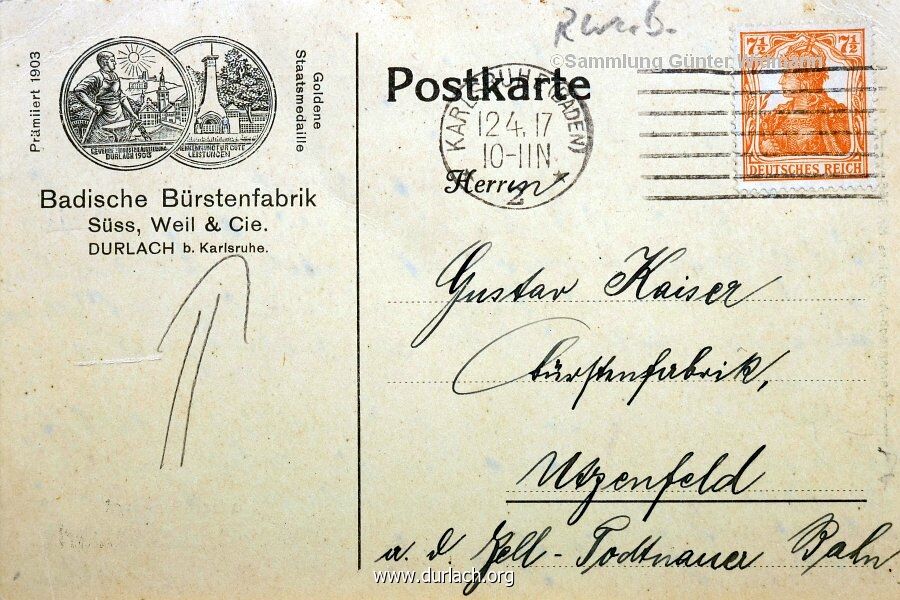 Prämiiert 1903
Goldene
Staatsmedaille
GEWERBE- INDUSTRIE-AUSSTELLUNG
DURLACH 1903
ANERKENNUNG FÜR GUTE
LEISTUNGEN
Badische Bürstenfabrik
Süss, Weil & Cie.
DURLACH b. Karlsruhe.
©Sammlung Günter Widmann
Postkarte
KARLSRUHE (BADEN)
12.4.17
10-11N
* 2 *
7½ 7½
DEUTSCHES REICH
Herrn
Gustav Kaiser
Bürstenfabrik,
Utzenfeld
a. d. Zell-Todtnauer Bahn.
www.durlach.org